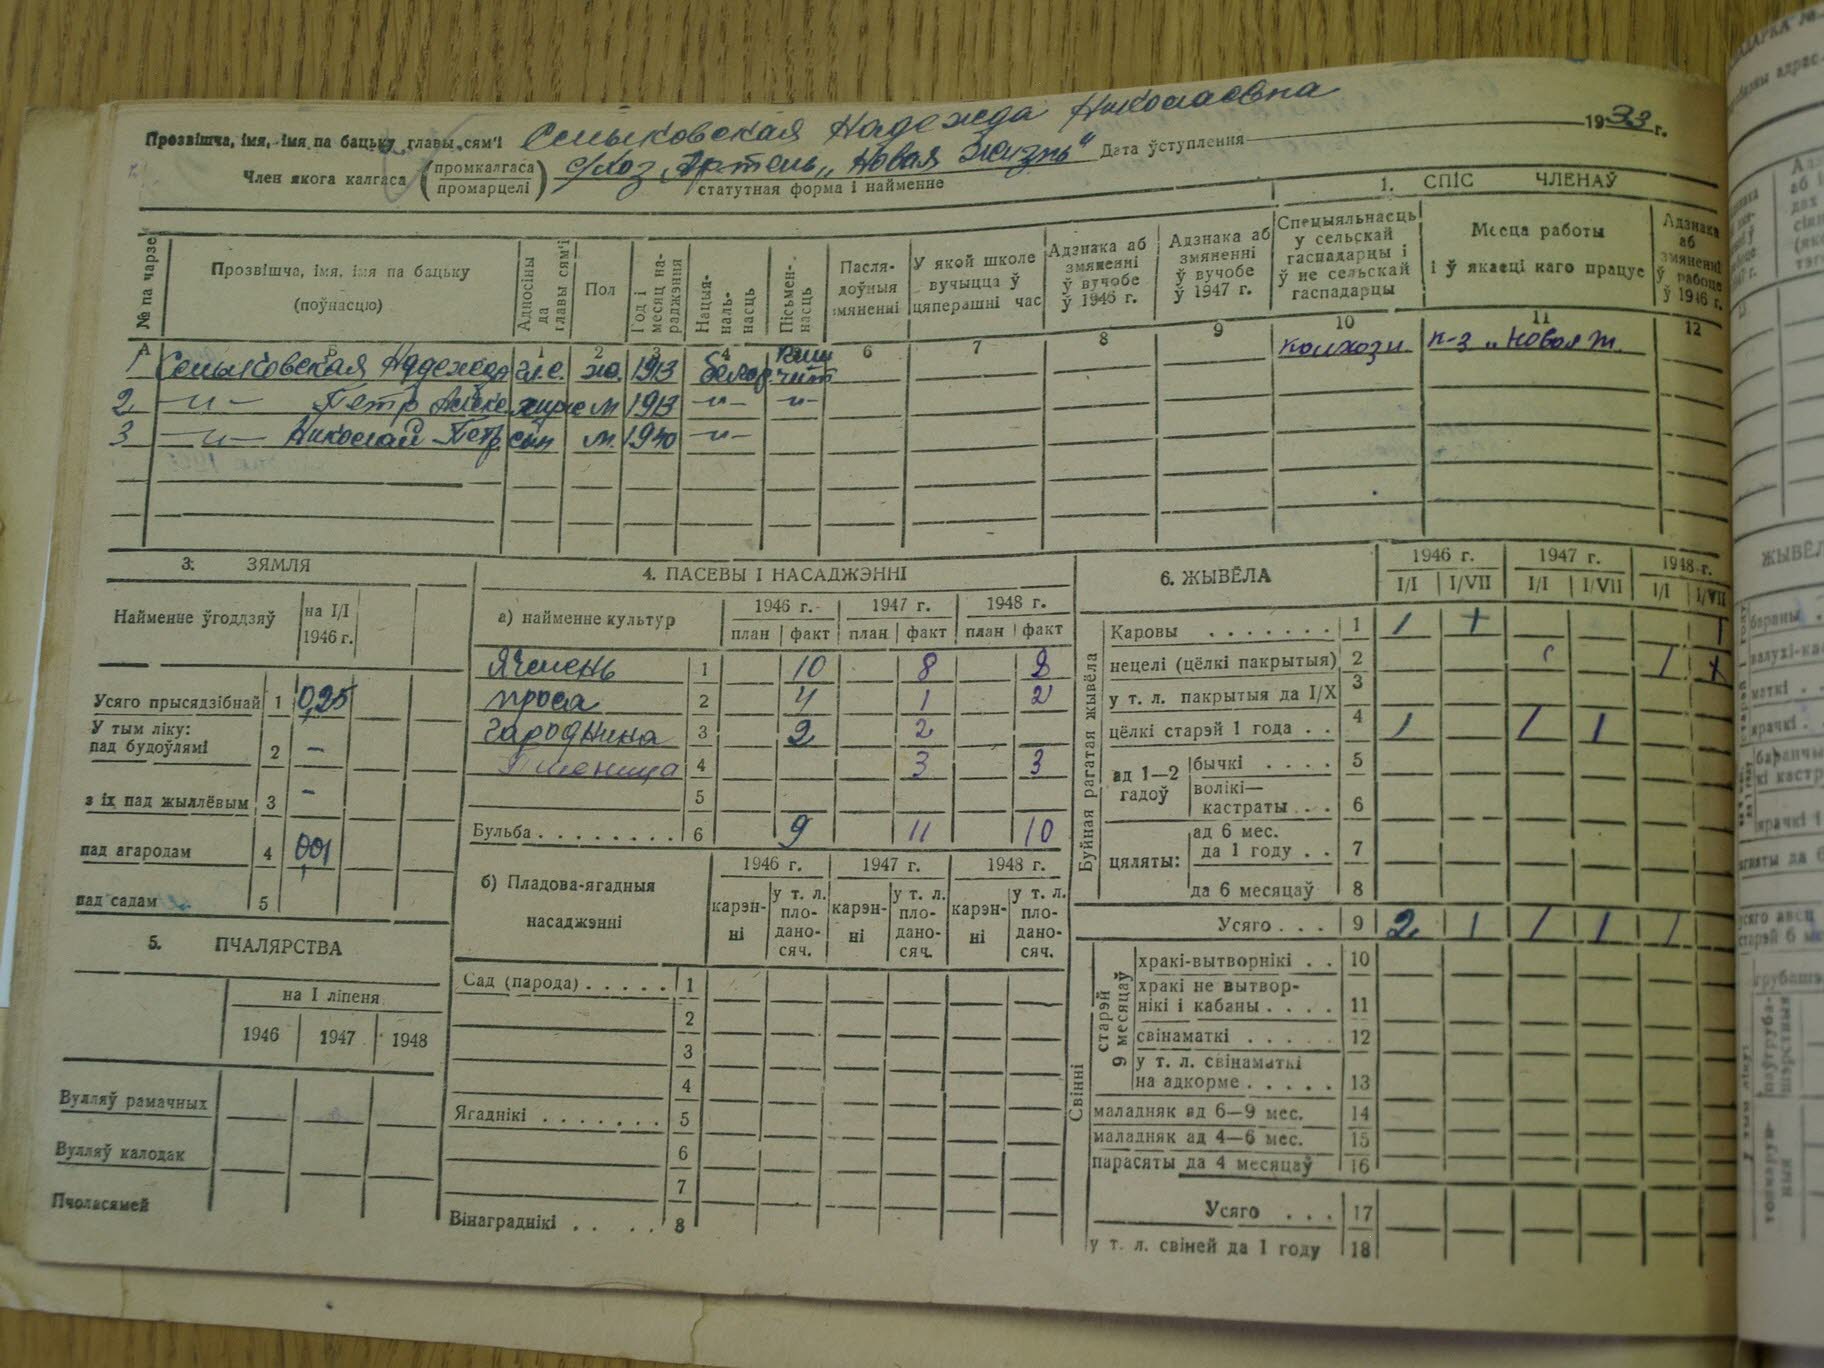 Прозвішча, імя, імя па бацьку главы сям'і Семыковская Надежда Николаевна
Член якога калгаса (промкалгаса промарцелі) с/хоз Артель „Новая Жизнь" Дата ўступлення 1933 г.
статутная форма і найменне
1. СПІС ЧЛЕНАЎ
№ па чарзе
Прозвішча, імя, імя па бацьку (поўнасцю)
Адносіны да главы сям'і
Пол
Год і месяц нараджэння
Нацыянальнасць
Пісьменнасць
Паслядоўныя змяненні
У якой школе вучыцца ў цяперашні час
Адзнака аб змяненні ў вучобе ў 1946 г.
Адзнака аб змяненні ў вучобе ў 1947 г.
Спецыяльнасць у сельскай гаспадарцы і ў не сельскай гаспадарцы
Месца работы і ў якасці каго працуе
Адзнака аб змяненні ў рабоце ў 1946 г.
А Б 1 2 3 4 5 6 7 8 9 10 11 12
1 Семыковская Надежда гл.с. ж. 1913 белор. чит колхозн к-з „Новая Ж.
2 —〃— Петр муж м 1913 —〃— —〃—
3 —〃— Николай Петр сын м. 1940 —〃—
3. ЗЯМЛЯ
Найменне ўгоддзяў на I/I 1946 г.
Усяго прысядзібнай 1 0,25
У тым ліку:
пад будоўлямі 2 —
з іх пад жыллёвым 3 —
пад агародам 4 0,01
пад садам 5
5. ПЧАЛЯРСТВА
на I ліпеня
1946 1947 1948
Вулляў рамачных
Вулляў калодак
Пчоласямей
4. ПАСЕВЫ І НАСАДЖЭННІ
а) найменне культур 1946 г. 1947 г. 1948 г.
план факт план факт план факт
Ячмень 1 10 8 8
проса 2 4 1 2
гароднина 3 2 2
Пшеница 4 3 3
5
Бульба 6 9 11 10
б) Пладова-ягадныя насаджэнні
1946 г. 1947 г. 1948 г.
карэнні у т. л. пладаносяч. карэнні у т. л. пладаносяч. карэнні у т. л. пладаносяч.
Сад (парода) 1
2
3
4
Ягаднікі 5
6
7
Вінаграднікі 8
6. ЖЫВЁЛА
1946 г. 1947 г. 1948 г.
I/I I/VII I/I I/VII I/I I/VII
Буйная рагатая жывёла
Каровы 1 1 +
нецелі (цёлкі пакрытыя) 2
у т. л. пакрытыя да I/X 3
цёлкі старэй 1 года 4 1 1 1
ад 1—2 гадоў
бычкі 5
волікі—кастраты 6
цяляты:
ад 6 мес. да 1 году 7
да 6 месяцаў 8
Усяго 9 2 1 1 1 1
Свінні
старэй 9 месяцаў
хракі-вытворнікі 10
хракі не вытворнікі і кабаны 11
свінаматкі 12
у т. л. свінаматкі на адкорме 13
маладняк ад 6—9 мес. 14
маладняк ад 4—6 мес. 15
парасяты да 4 месяцаў 16
Усяго 17
у т. л. свіней да 1 году 18